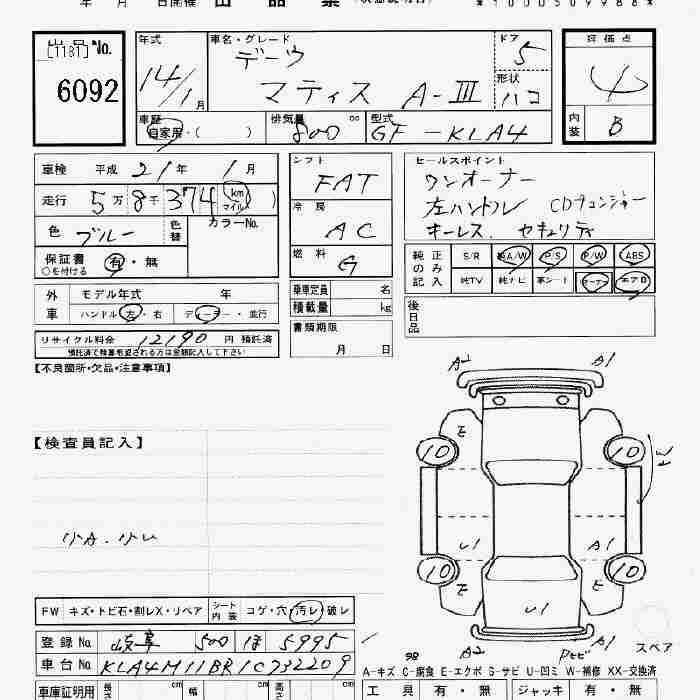 年 月 日開催 出 品 票
*1000509988*
出品 No.
[1181]
6092
年式
14/1月
車名・グレード
デーウ
マティス A-III
ドア
5
形状
ハコ
評価点
4
内装 B
車歴
自家用・( )
排気量 cc
800
型式
GF-KLA4
車検 平成 21年 1月
走行 5万8千374 km マイル
色 ブルー 色替 カラーNo.
保証書 有・無
○を付ける
シフト
FAT
冷房
AC
燃料
G
セールスポイント
ワンオーナー
左ハンドル CDチェンジャー
キーレス セキュリティ
純正のみ記入 S/R 純A/W P/S P/W ABS
純TV 純ナビ 革シート エアB
外車 モデル年式 年
ハンドル 左・右 ディーラー・並行
乗車定員 名
積載量 kg
後日品
リサイクル料金 12190 円 預託済
預託済で検車希望される方は金額記入して下さい
書類期限
月 日
【不良箇所・欠品・注意事項】
【検査員記入】
小A.小U
A2 A1
E
10 10
10 10
U1 A1
E E
U1
A2
スペア
FW キズ・トビ石・割レX・リペア シート内装 コゲ・穴・汚レ・破レ
登録No. 岐阜 500 ほ 5995
車台No. KLA4M11BR1C732209
A-キズ C-腐食 E-エクボ S-サビ U-凹ミ W-補修 XX-交換済
車庫証明用 長さ cm 幅 cm 高さ cm
工具 有・無 ジャッキ 有・無